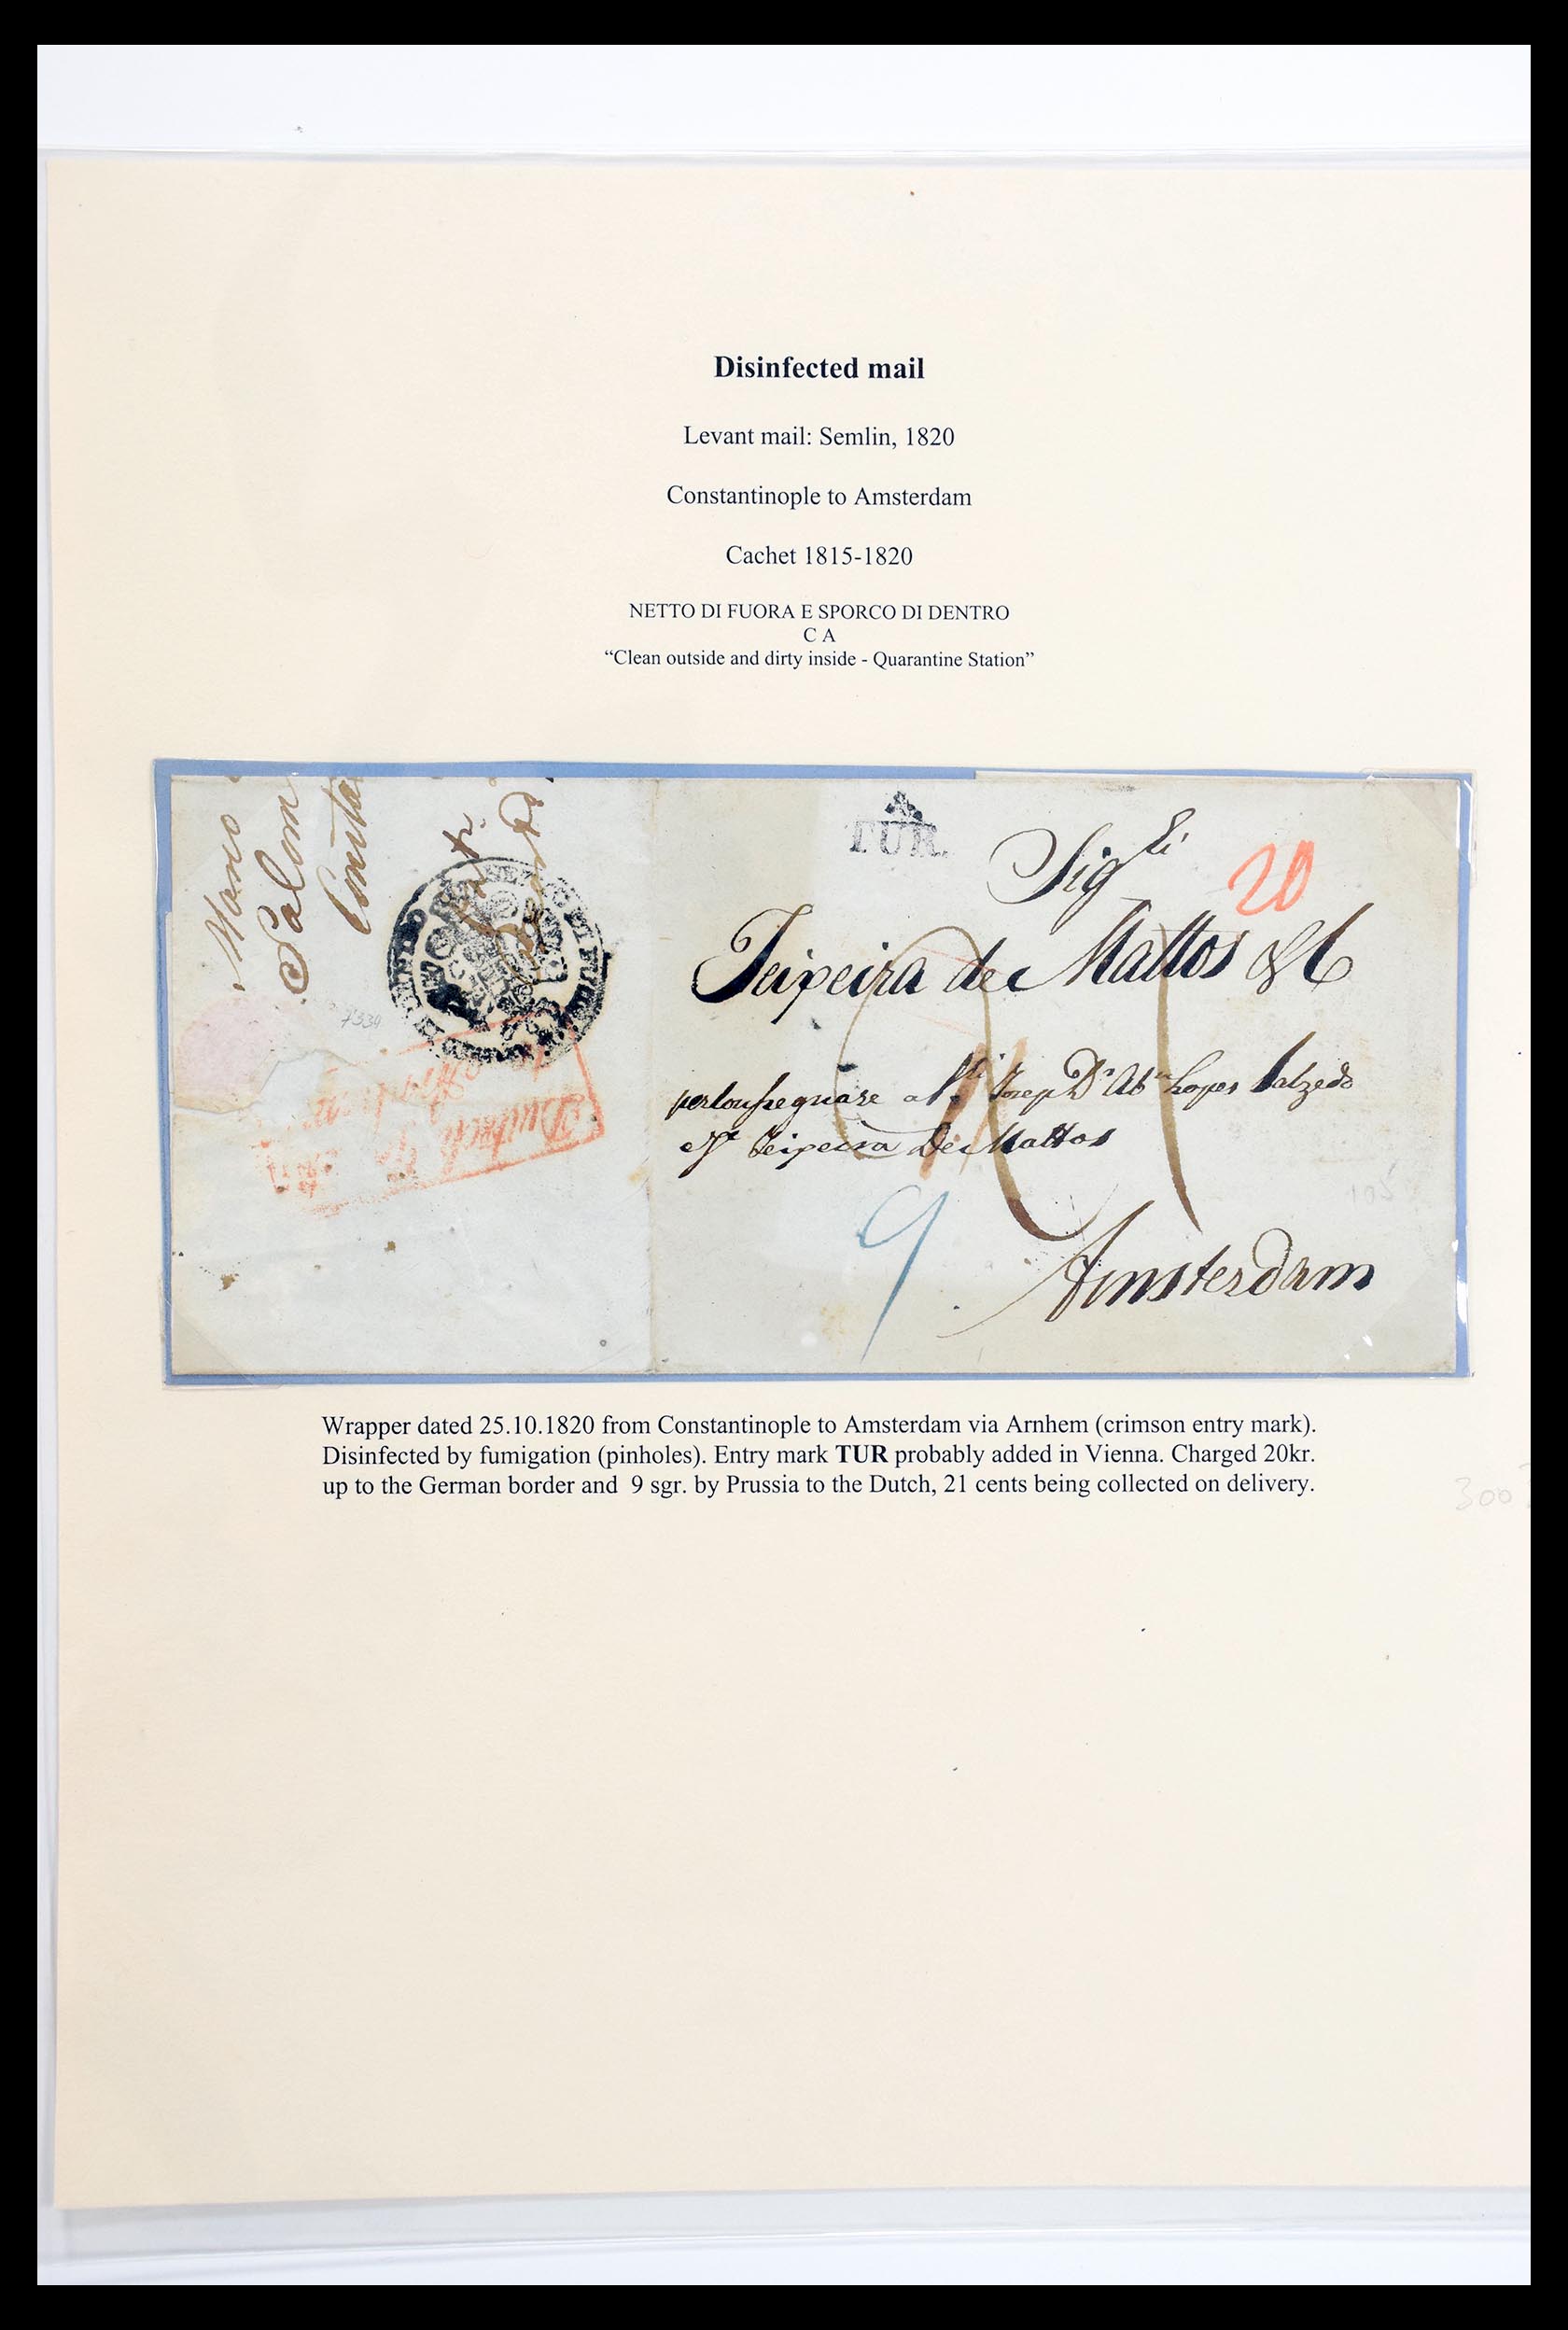 Disinfected mail
Levant mail: Semlin, 1820
Constantinople to Amsterdam
Cachet 1815-1820
NETTO DI FUORA E SPORCO DI DENTRO
C A
“Clean outside and dirty inside - Quarantine Station”
TUR.
Sig.ri
20
Teixeira de Mattos & C
Lopes Salzedo
Teixeira De Mattos
9
Amsterdam
105
Salom
7334
Wrapper dated 25.10.1820 from Constantinople to Amsterdam via Arnhem (crimson entry mark).
Disinfected by fumigation (pinholes). Entry mark TUR probably added in Vienna. Charged 20kr.
up to the German border and 9 sgr. by Prussia to the Dutch, 21 cents being collected on delivery.
300